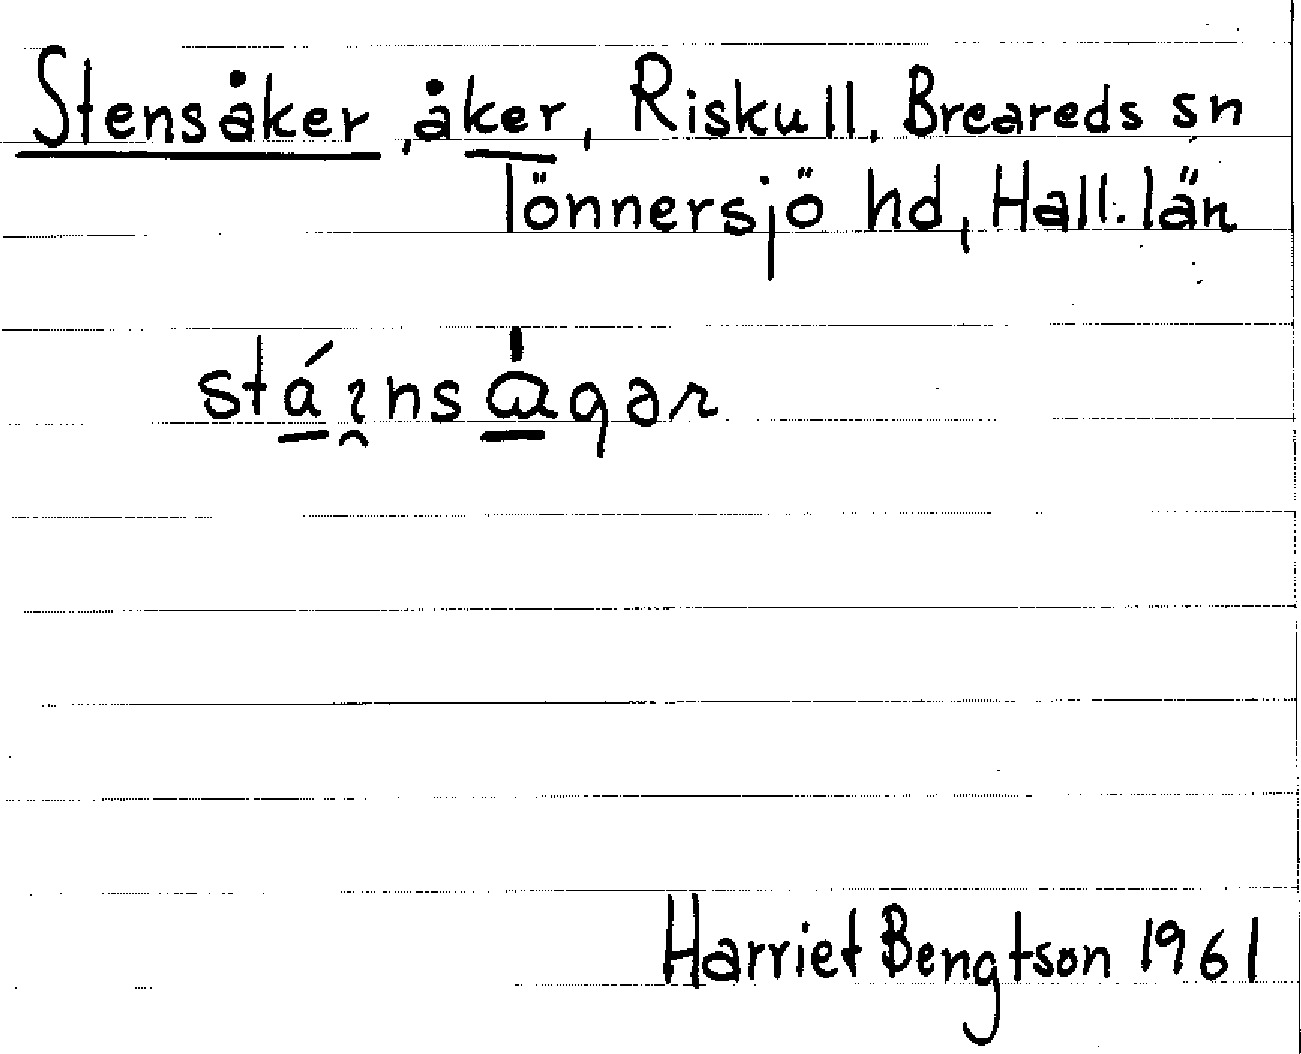 Stensåker, åker, Riskull, Breareds sn
Tönnersjö hd, Hall. län
stáɿnsågər
Harriet Bengtson 1961